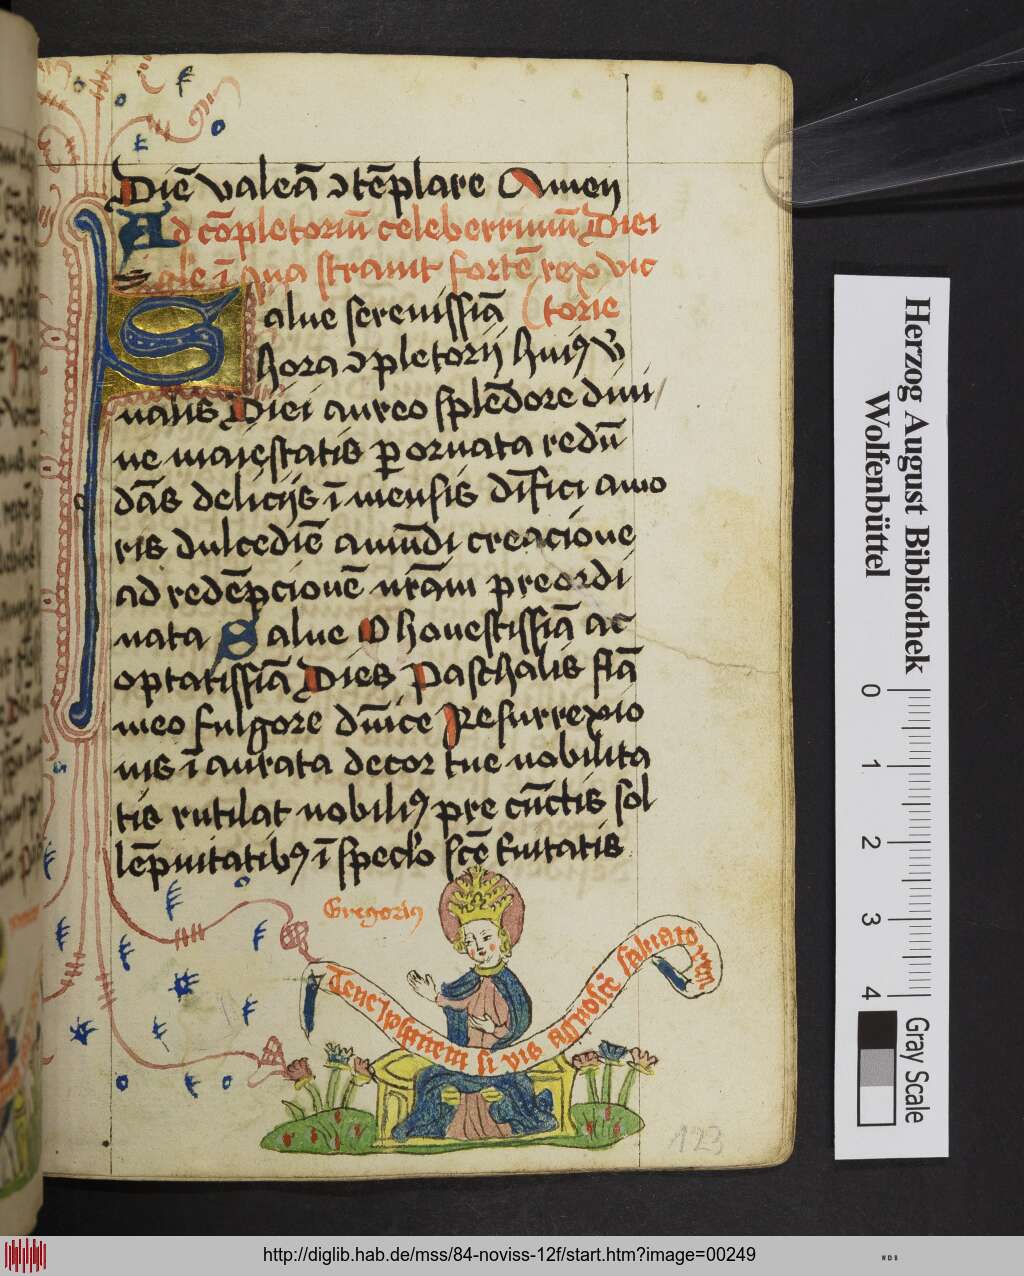 Diē valeā ↄtēplare Amen
Ad cōpletoriū celeberrimū Diei
ī qua strauit fortē rex vic
torie
Salue serenissīa
hora ↄpletorij huiꝰ
nalis Diei aureo splēdore diui
ne maiestatis ꝑornata redū
dās delicijs ī mensis dīfici amo
ris dulcediē amūdi creacione
ad redēpcionē nrām preordi
nata Salue O honestissīa ac
optatissīa Dies Paschalis flā
meo fulgore dn̄ice Resurrexio
nis īaurata decor tue nobilita
tis rutilat nobiliꝰ pre cūctis sol
lēpnitatibꝰ ī speclo scē t̄nitatis
Gregoriꝰ
Tene hospitem si vis agnoscē saluatorem
123
Herzog August Bibliothek
Wolfenbüttel
0 1 2 3 4
Gray Scale
http://diglib.hab.de/mss/84-noviss-12f/start.htm?image=00249
WDB